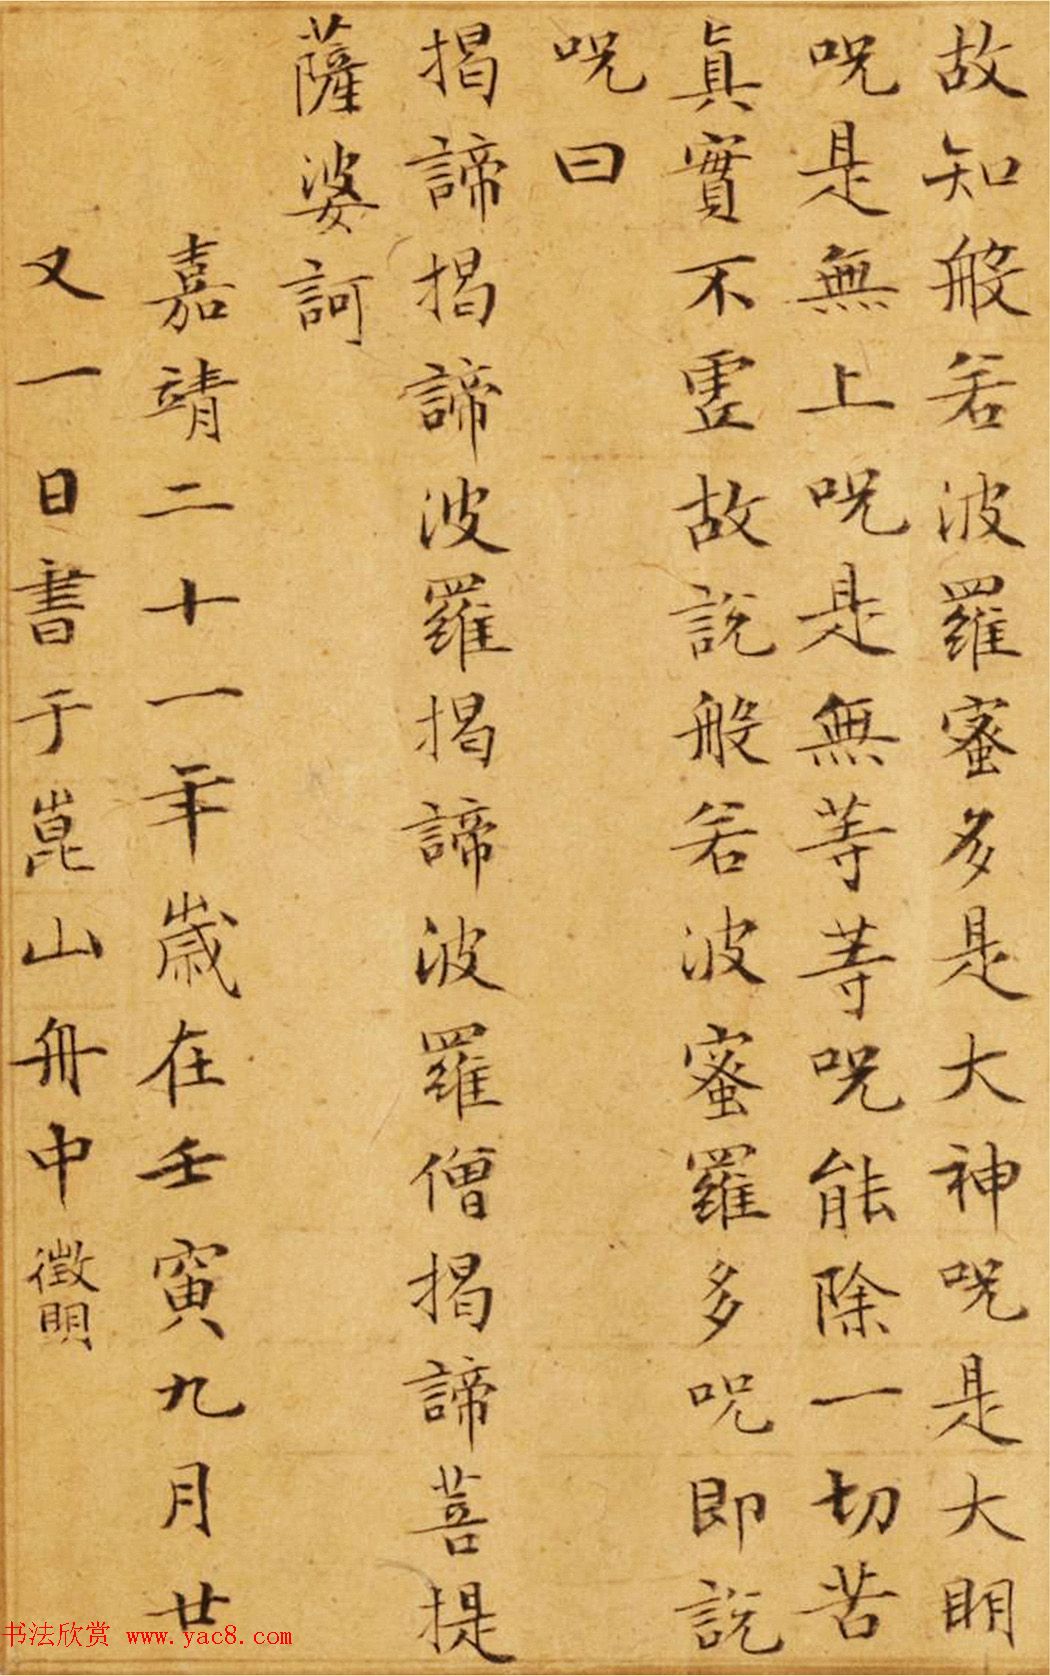 故知般若波羅蜜多是大神呪是大明
呪是無上呪是無等等呪能除一切苦
真實不虛故說般若波蜜羅多呪即說
呪曰
揭諦揭諦波羅揭諦波羅僧揭諦菩提
薩婆訶
嘉靖二十一年歲在壬寅九月廿
又一日書于崑山舟中徵明
书法欣赏 www.yac8.com